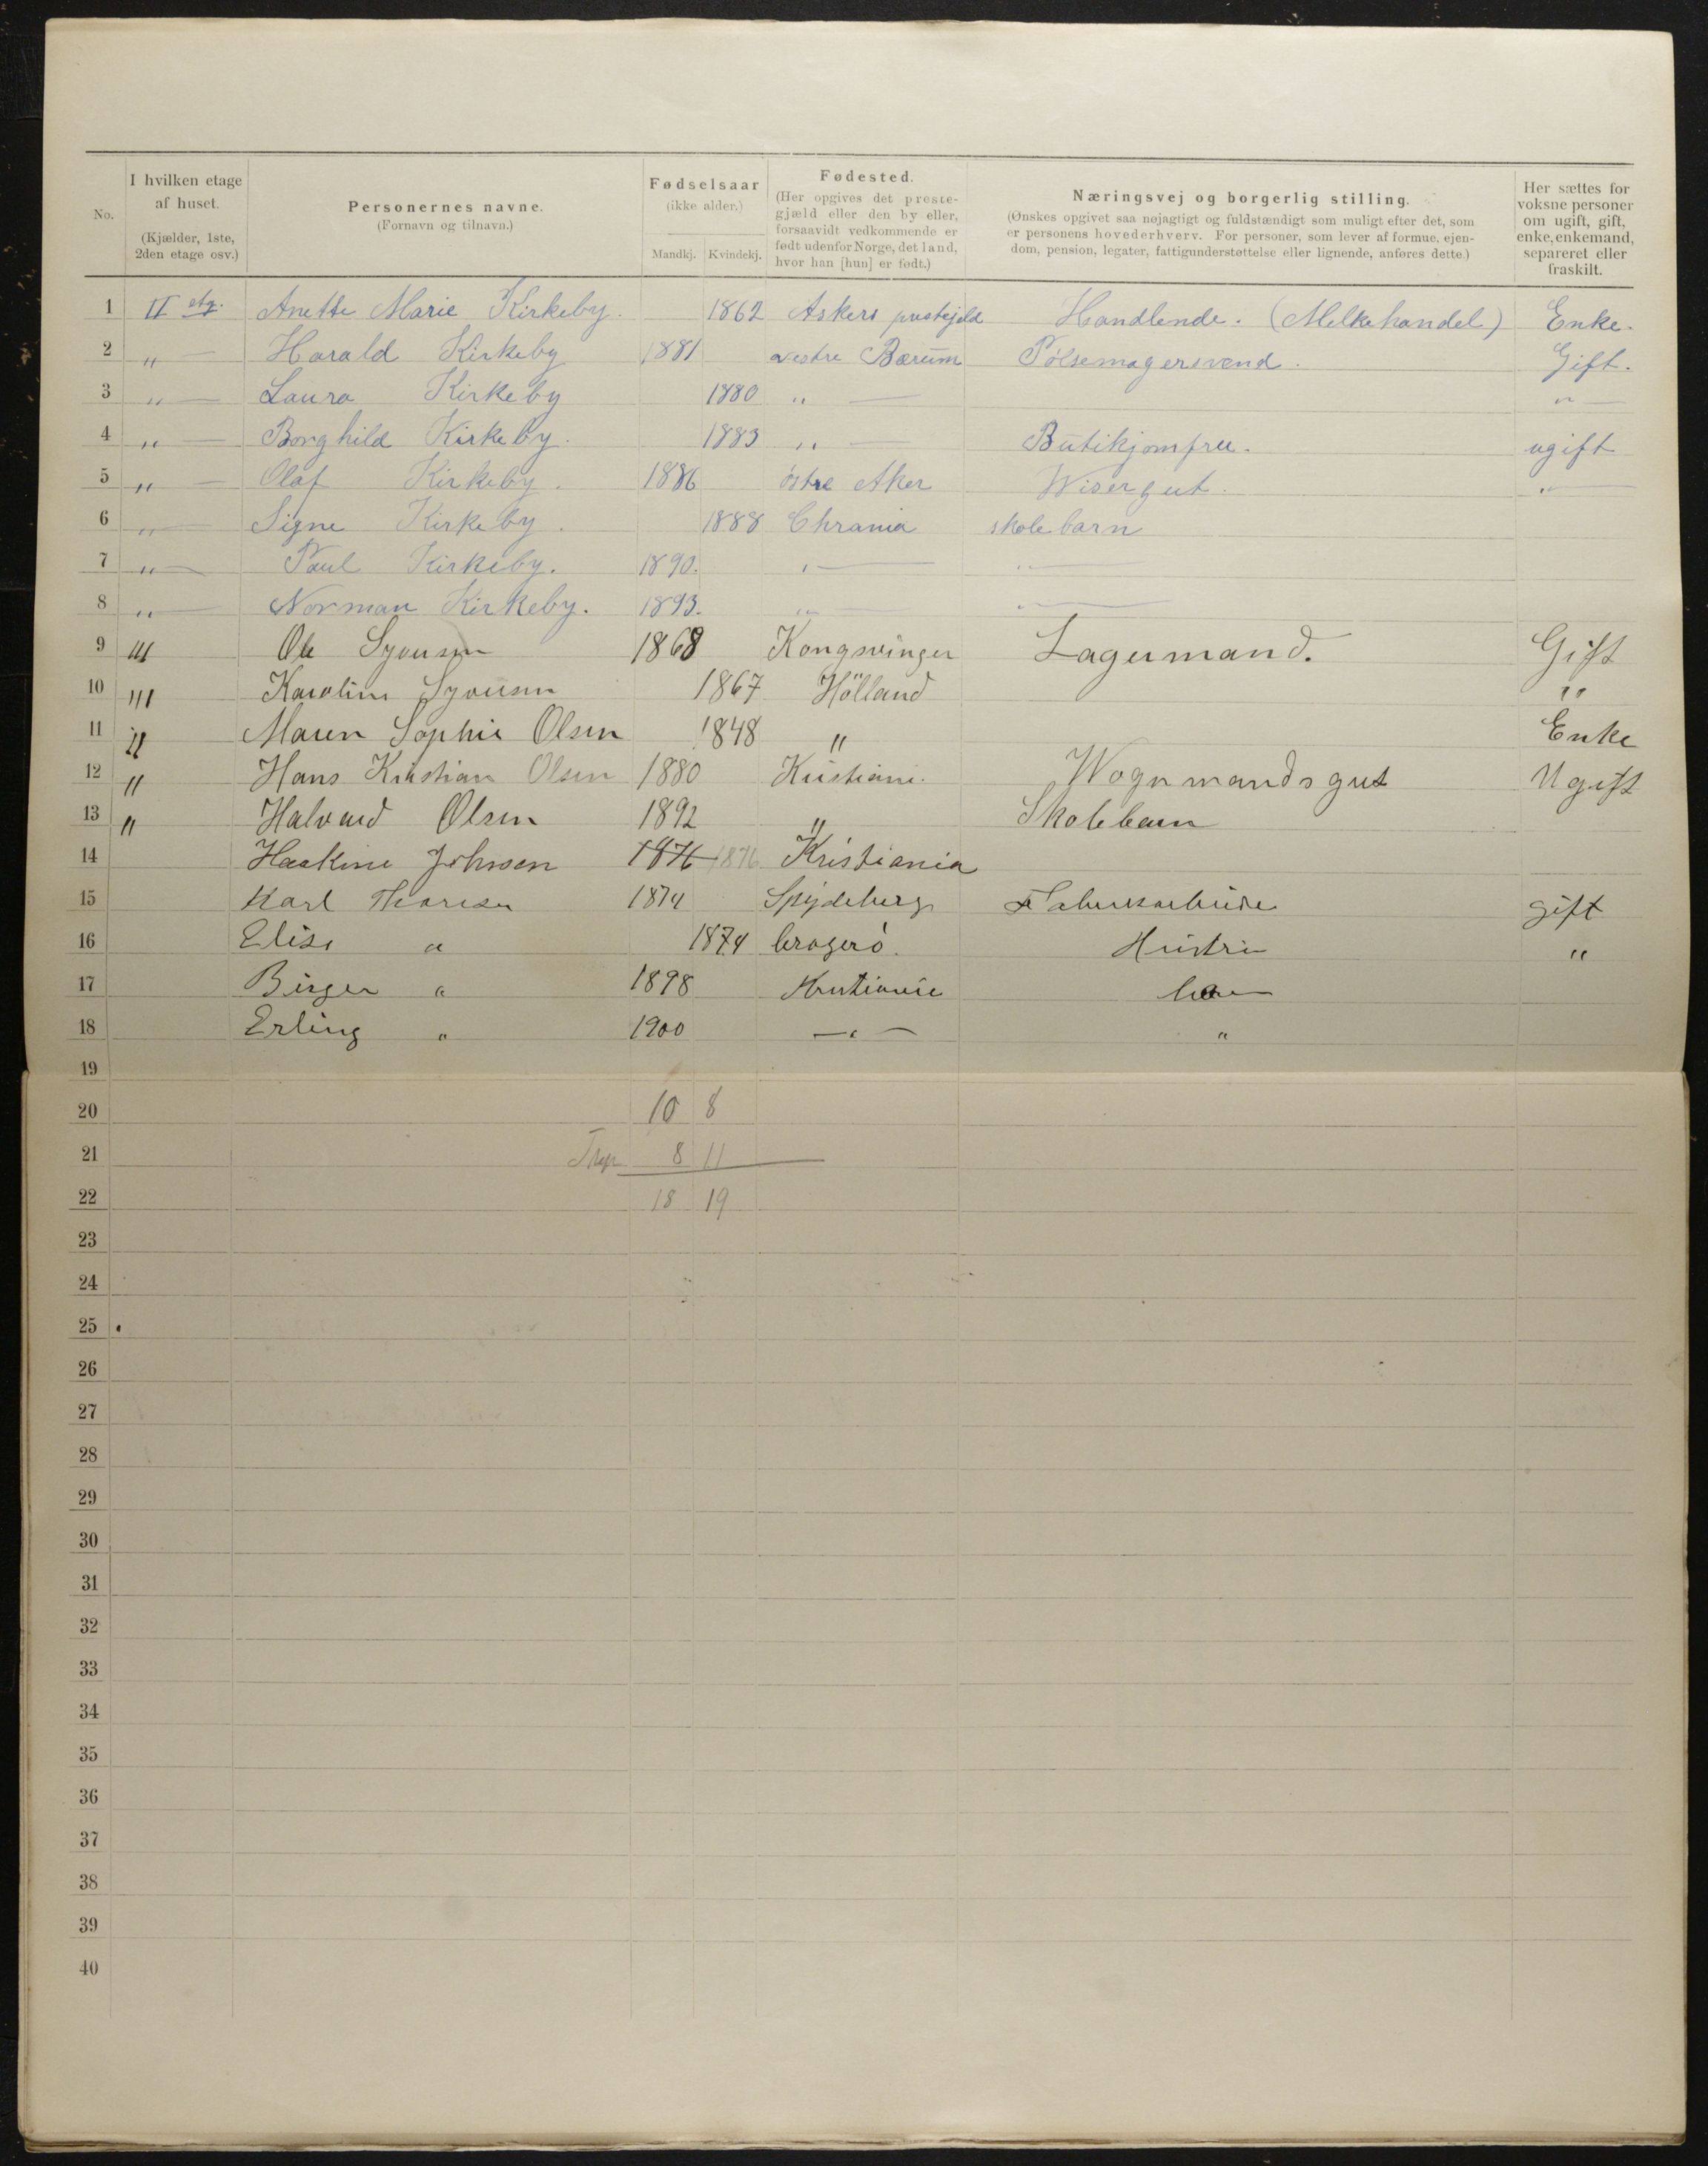 No.
I hvilken etage af huset. (Kjælder, 1ste, 2den etage osv.)
Personernes navne. (Fornavn og tilnavn.)
Fødselsaar (ikke alder.) Mandkj. Kvindekj.
Fødested. (Her opgives det prestegjæld eller den by eller, forsaavidt vedkommende er født udenfor Norge, det land, hvor han [hun] er født.)
Næringsvej og borgerlig stilling. (Ønskes opgivet saa nøjagtigt og fuldstændigt som muligt efter det, som er personens hovederhverv. For personer, som lever af formue, ejendom, pension, legater, fattigunderstøttelse eller lignende, anføres dette.)
Her sættes for voksne personer om ugift, gift, enke, enkemand, separeret eller fraskilt.
1 II etg. Anette Marie Kirkeby. 1862 Askers Handlende. (Melkehandel) Enke.
2 " — Harald Kirkeby 1881 vestre Bærum Pölsemagersvend. Gift.
3 " — Laura Kirkeby 1880 " — " —
4 " — Borghild Kirkeby. 1883 " — Butikjomfru. ugift
5 " — Olaf Kirkeby. 1886 östre Aker Wisergut. " —
6 " — Signe Kirkeby. 1888 Chrania skolebarn
7 " — Paul Kirkeby. 1890. " — " —
8 " — Norman Kirkeby. 1893. " — " —
9 III Ole 1868 Kongsvinger Lagermand. Gift
10 III Karoline 1867 Hölland "
11 " Maren Sophie Olsen 1848 " Enke
12 " Hans Kristian Olsen 1880 Kristiania. Wognmandsgut Ugift
13 " Halvard Olsen 1892 " Skolebarn
14 Haakine Johnsen 1876 1876 Kristiania
15 Karl Thoresen 1874 Spydeberg Fabrikarbeider gift
16 Elise " 1874 Hustru "
17 Birger " 1898 Kristiania barn
18 Erling " 1900 — " — "
19
20 10 8
21 8 11
22 18 19
23
24
25
26
27
28
29
30
31
32
33
34
35
36
37
38
39
40